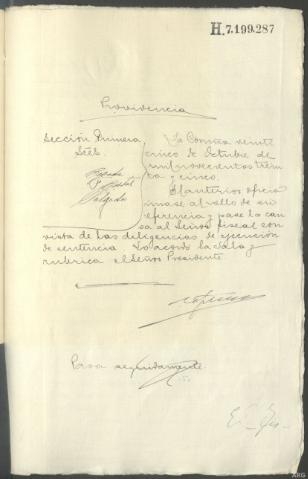 H.7.199.287
Providencia
Sección Primera
Señs.
Salgado
La Coruña veinte
cinco de Octubre de
mil novecientos trein
ta y cinco.
El anterior oficio
únase al rollo de su
referencia y pase la cau
sa al Señor fiscal con
vista de las diligencias de ejecución
de sentencia Lo acordó la Sala y
rubrica el Señor Presidente
Pasa seguidamente
ARG